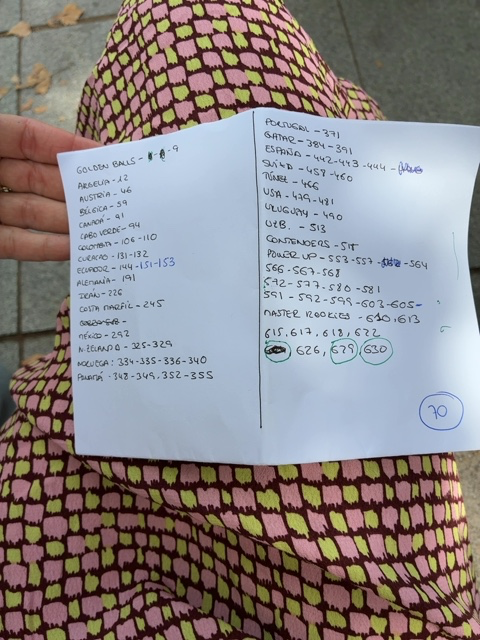 GOLDEN BALLS - 9
ARGELIA - 12
AUSTRIA - 46
BÉLGICA - 59
CANADÁ - 91
CABO VERDE - 94
COLOMBIA - 106 - 110
CURACAO - 131 - 132
ECUADOR - 144 - 151 - 153
ALEMANIA - 191
IRÁN - 226
COSTA MARFIL - 245
MÉXICO - 292
N. ZELAND - 325 - 329
NORUEGA: 334 - 335 - 336 - 340
PANAMÁ - 348 - 349, 352 - 355
PORTUGAL - 371
QATAR - 384 - 391
ESPAÑA - 442 - 443 - 444 -
SUIZA - 458 - 460
TÚNEZ - 466
USA - 479 - 481
URUGUAY - 490
UZB. - 513
CONTENDERS - 517
POWER UP - 553 - 557 - 564
566 - 567 - 568
572 - 577 - 580 - 581
591 - 592 - 599 - 603 - 605 -
MASTER ROOKIES - 610, 613
615, 617, 618, 622
626, 629, 630
70